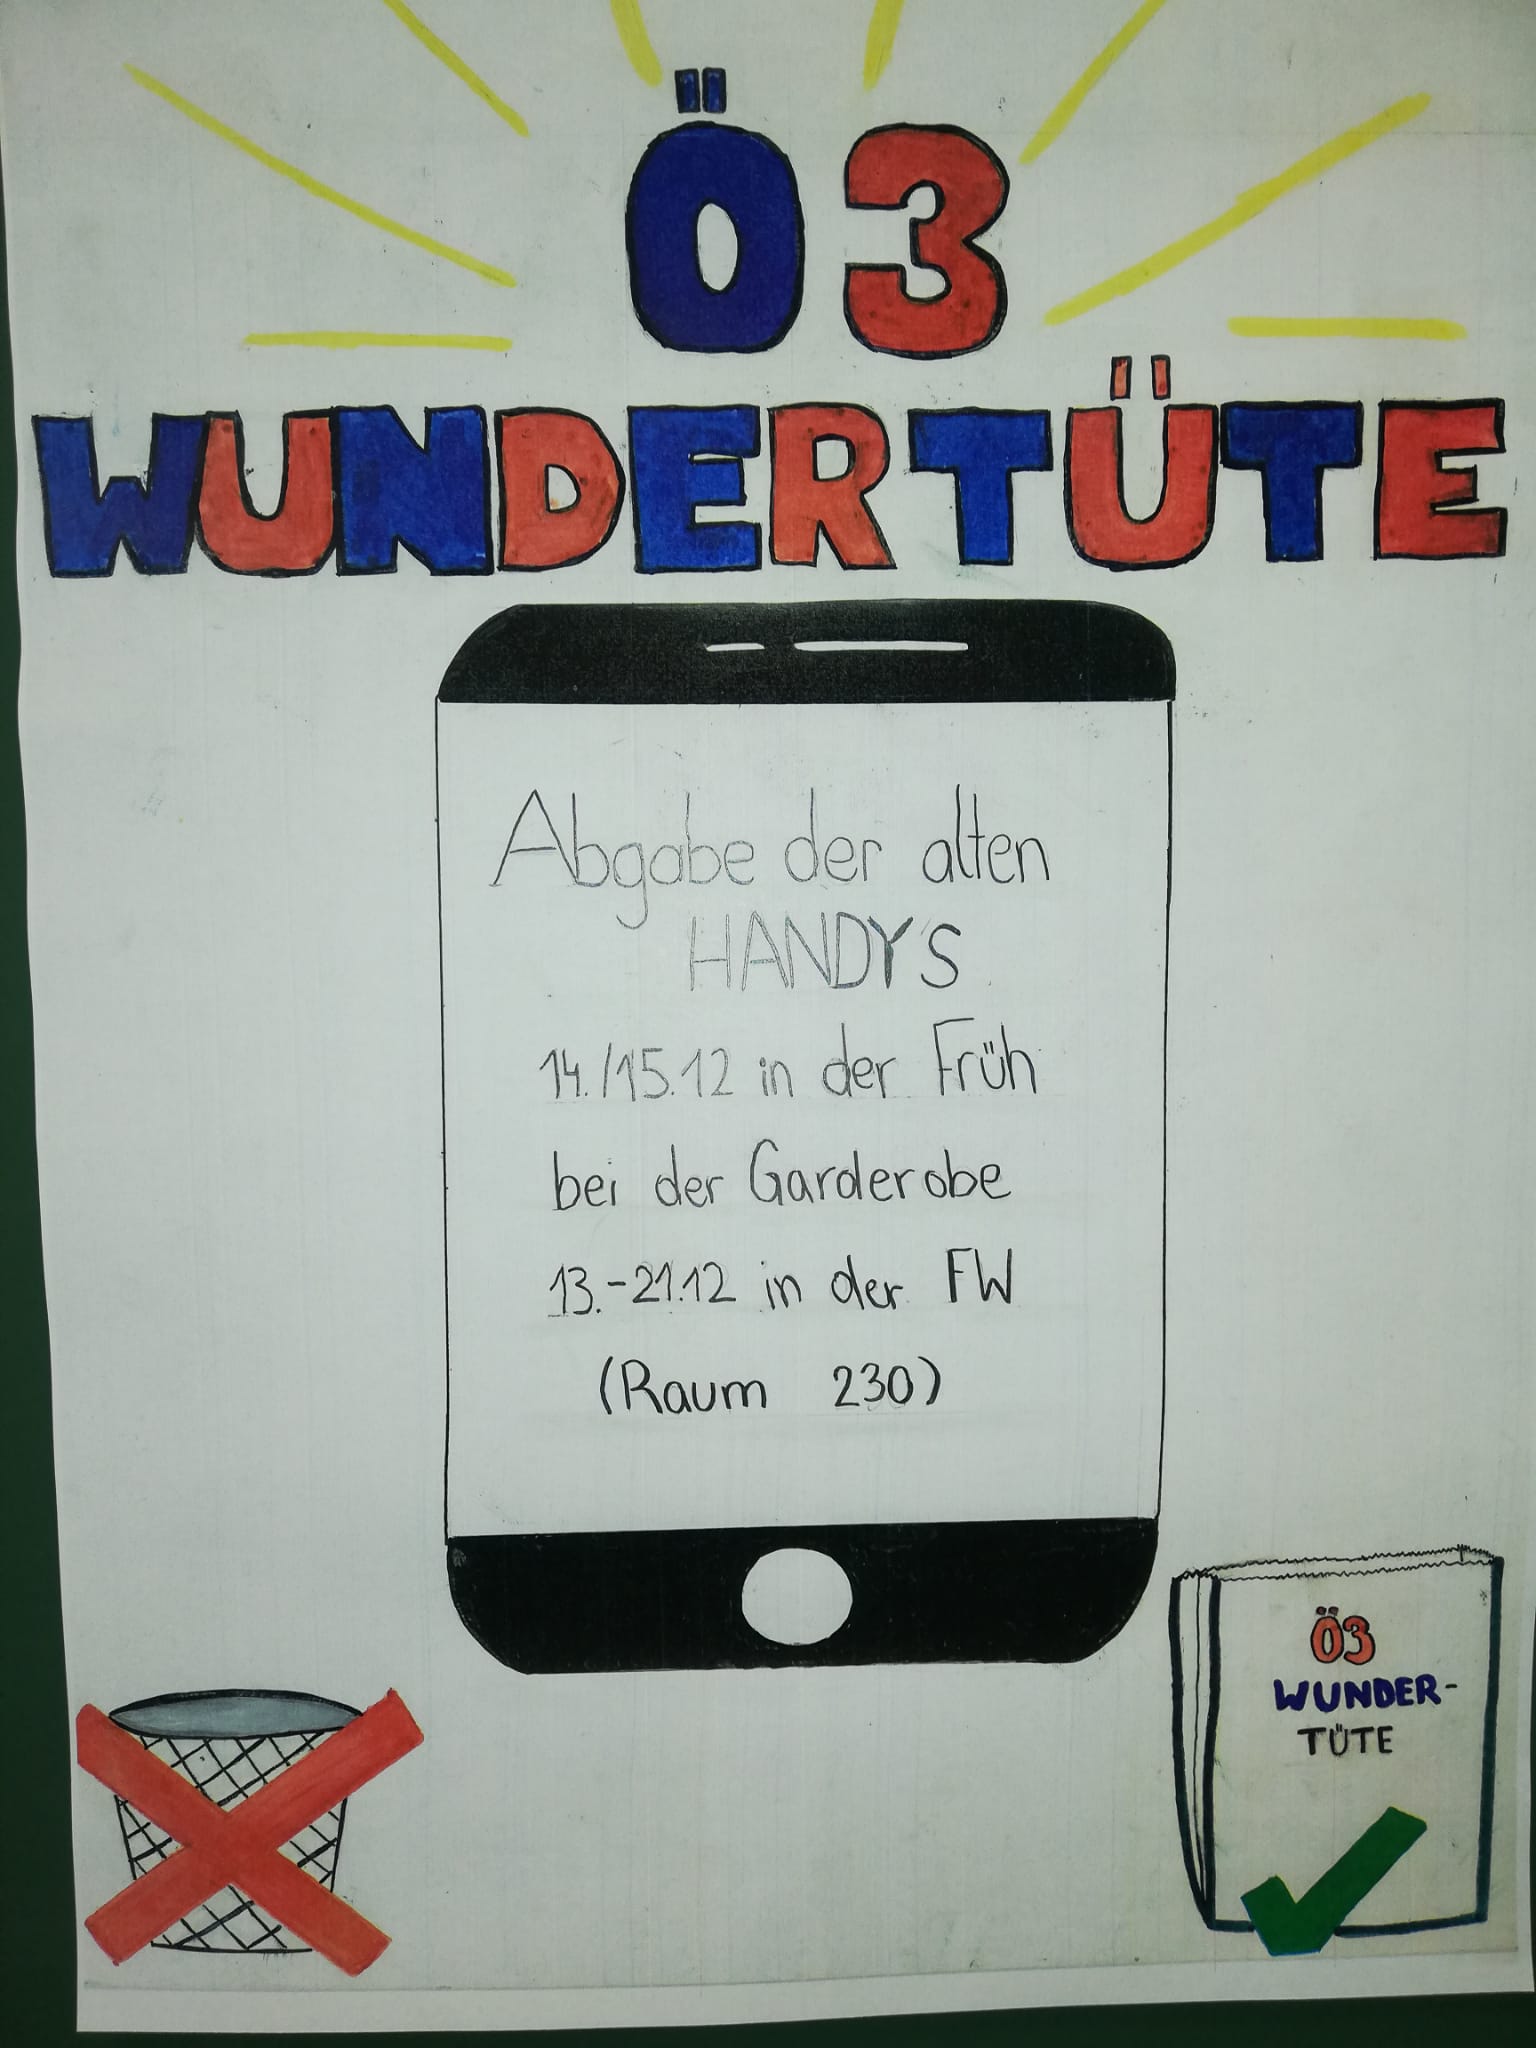 Ö3
WUNDERTÜTE
Abgabe der alten
HANDYS
14./15.12 in der Früh
bei der Garderobe
13.-21.12 in der FW
(Raum 230)
Ö3
WUNDER-
TÜTE